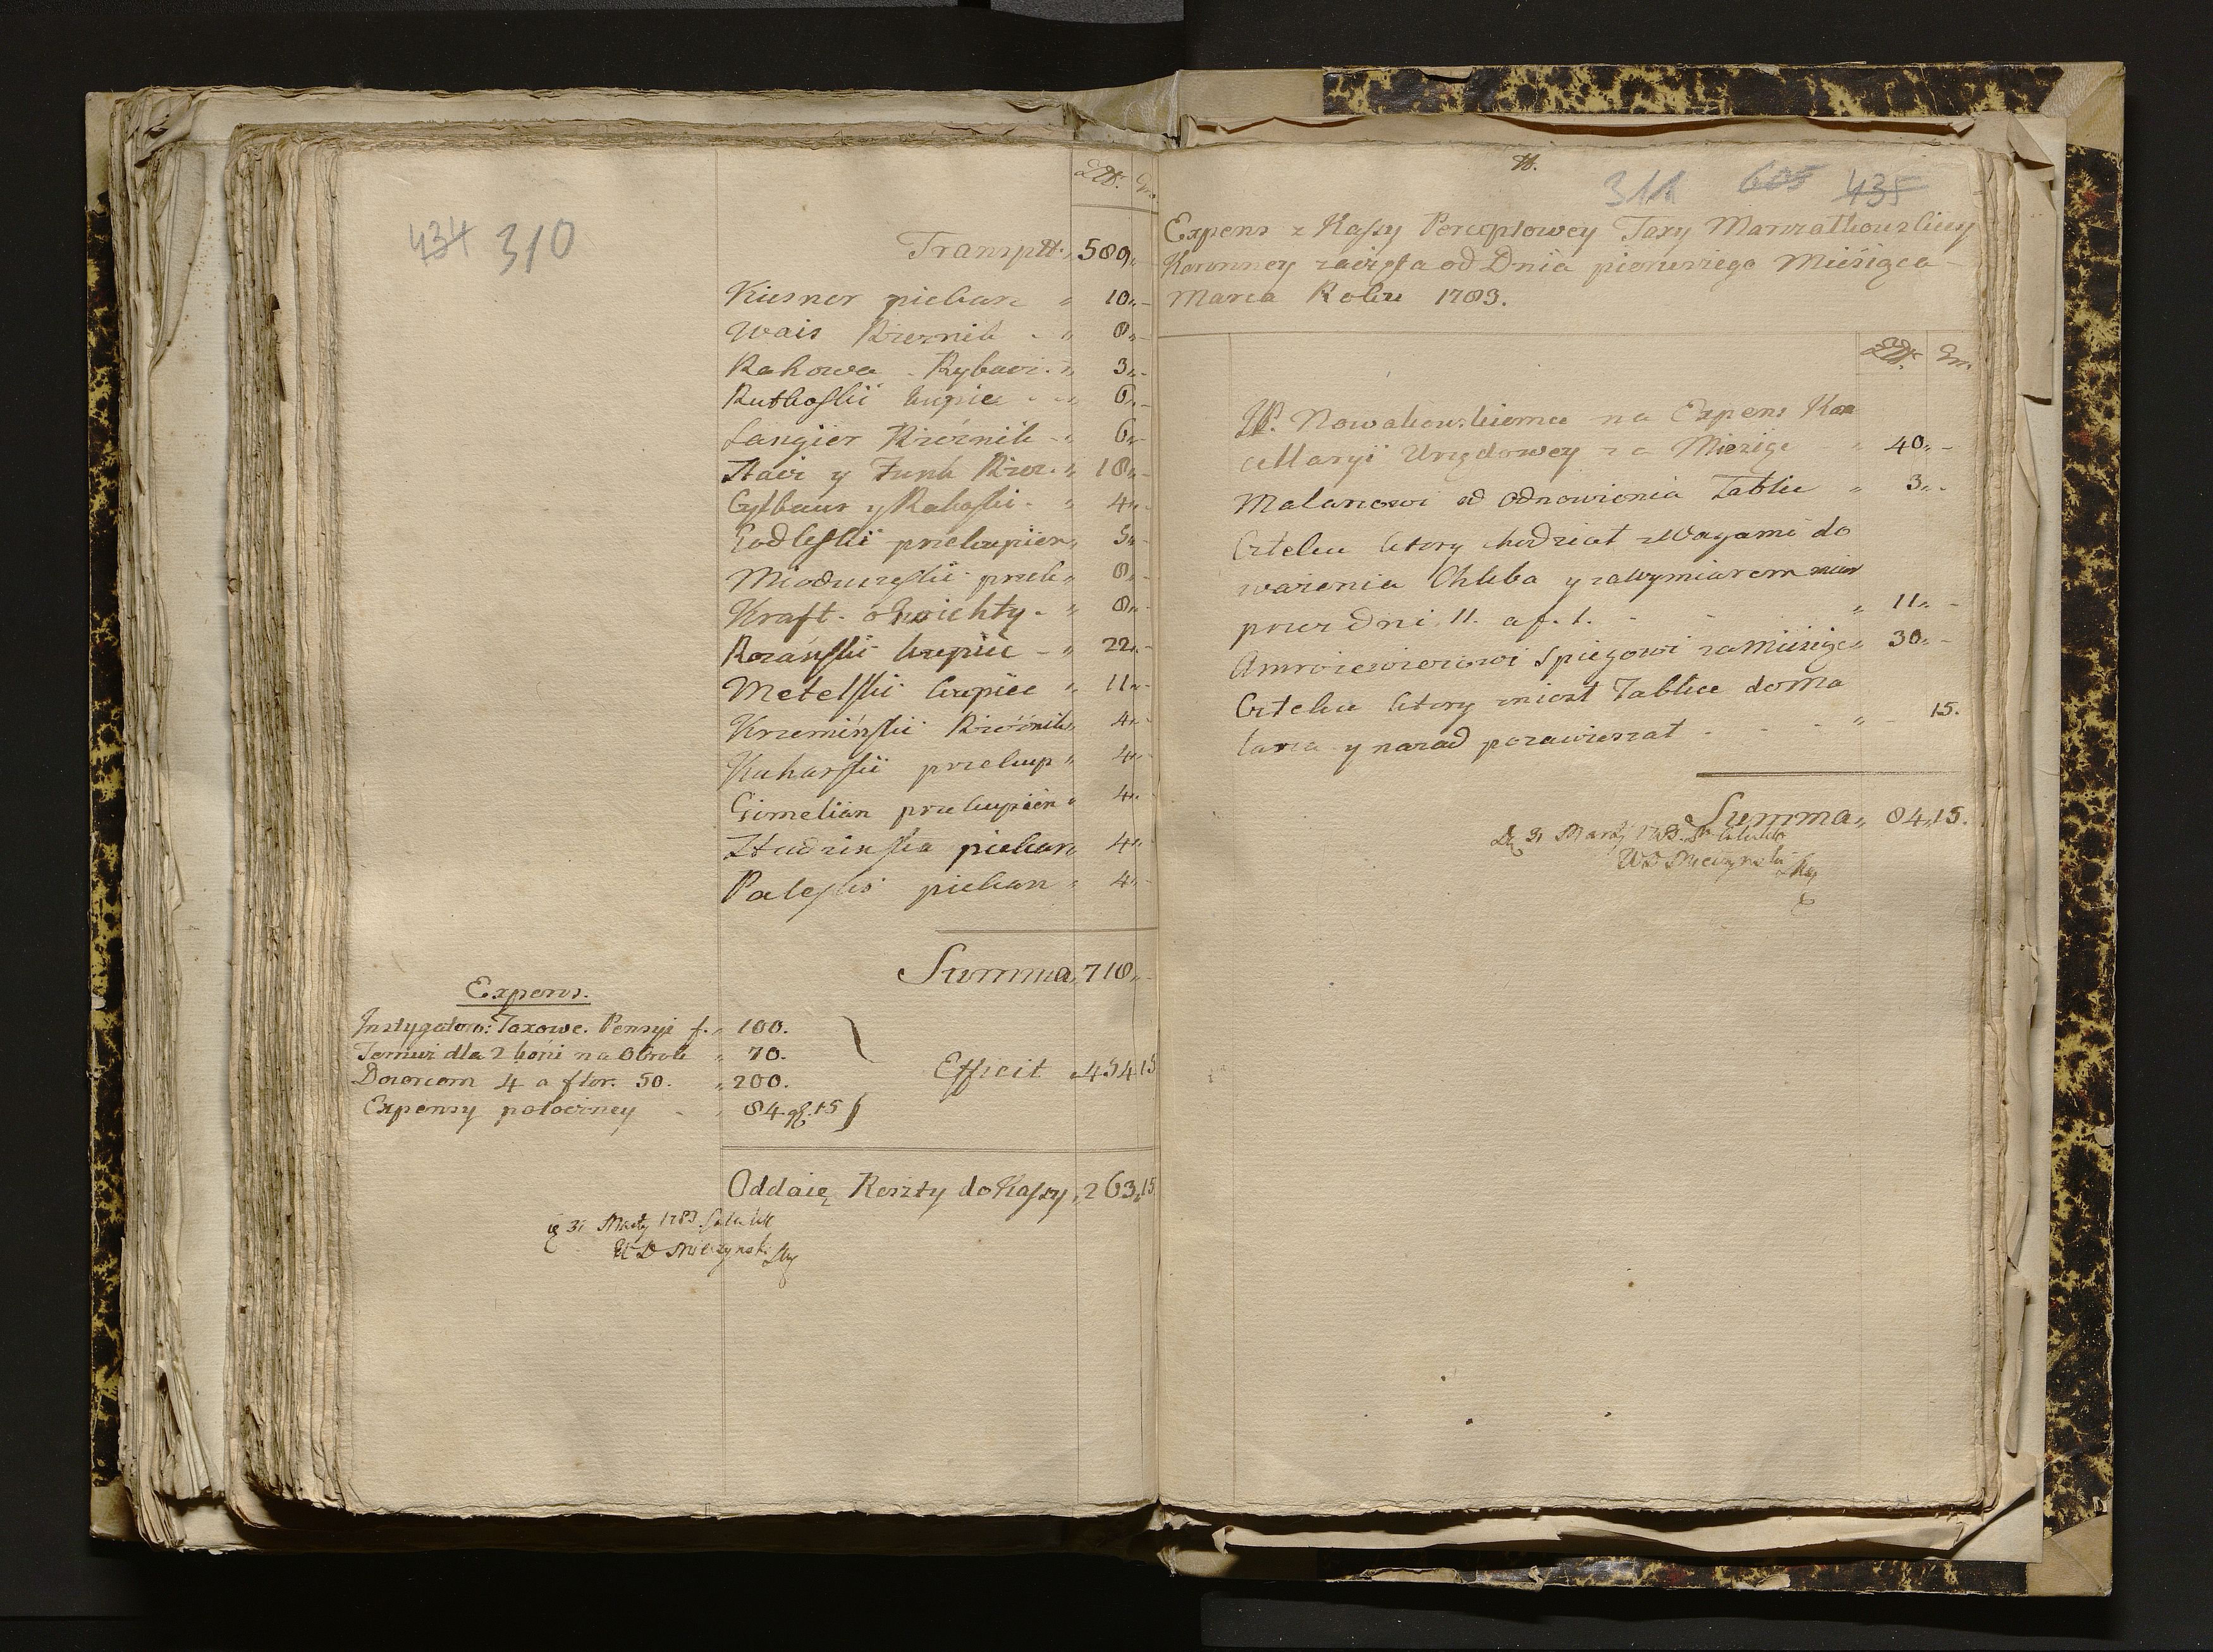 434 310
Złł. Gr.
Transptt. 589.
Kiesner piekarz 10.
Wais Rzeznik 8.
Rakowa Rybacz. 3.
Rutkoski kupiec 6.
Langier Rzeźnik 6.
Stavr y Funk Rzez. 18.
Cyltbaur y Rakoski 4.
Godleski przekupień 5.
Mioduszeski przek. 8.
Kraft o kwichty 8.
Rozański kupiec 22.
Metelski kupiec 11.
Krzeminski Rzeźnik 4.
Kuharski przekup 4.
Gimelian przekupień 4.
Studzinska piekar. 4.
Paleski piekarz 4.
Summa 718.
Expens.
Instygatoro: Taxowe. Pensyi f. 100.
Temuż dla 2 koni na Obrok 70.
Dozorcom 4 a flor. 50. 200.
Expensy potoczney 84 gr. 15
Efficit 454 15
Oddaię Reszty do Kassy 263 15
31 Marty 1783
W D Mieczynski
H.
311 605 435
Expens z Kassy Perceptowey Taxy Marszałkowskiey
Koronney zaczęta od Dnia pierwszego Miesiąca
Marca Roku 1783.
Złł. Gr.
JP. Nowakowskiemu na Expens Kan
cellaryi Urzędowey za Miesiąc 40.
Malarzowi od odnowienia Tablic 3.
Cztelu ktory chodział z Wagami do
ważenia Chleba y za Wymiarem miar
przez dni 11. a f. 1. 11.
Amroziewiczowi Spiegowi za Miesiąc 30.
Cztelu ktory zniosł Tablice do Ma
larza y nazad pozawieszał 15.
Summa 84 15.
D 31 Marty 1783
W D Mieczynski